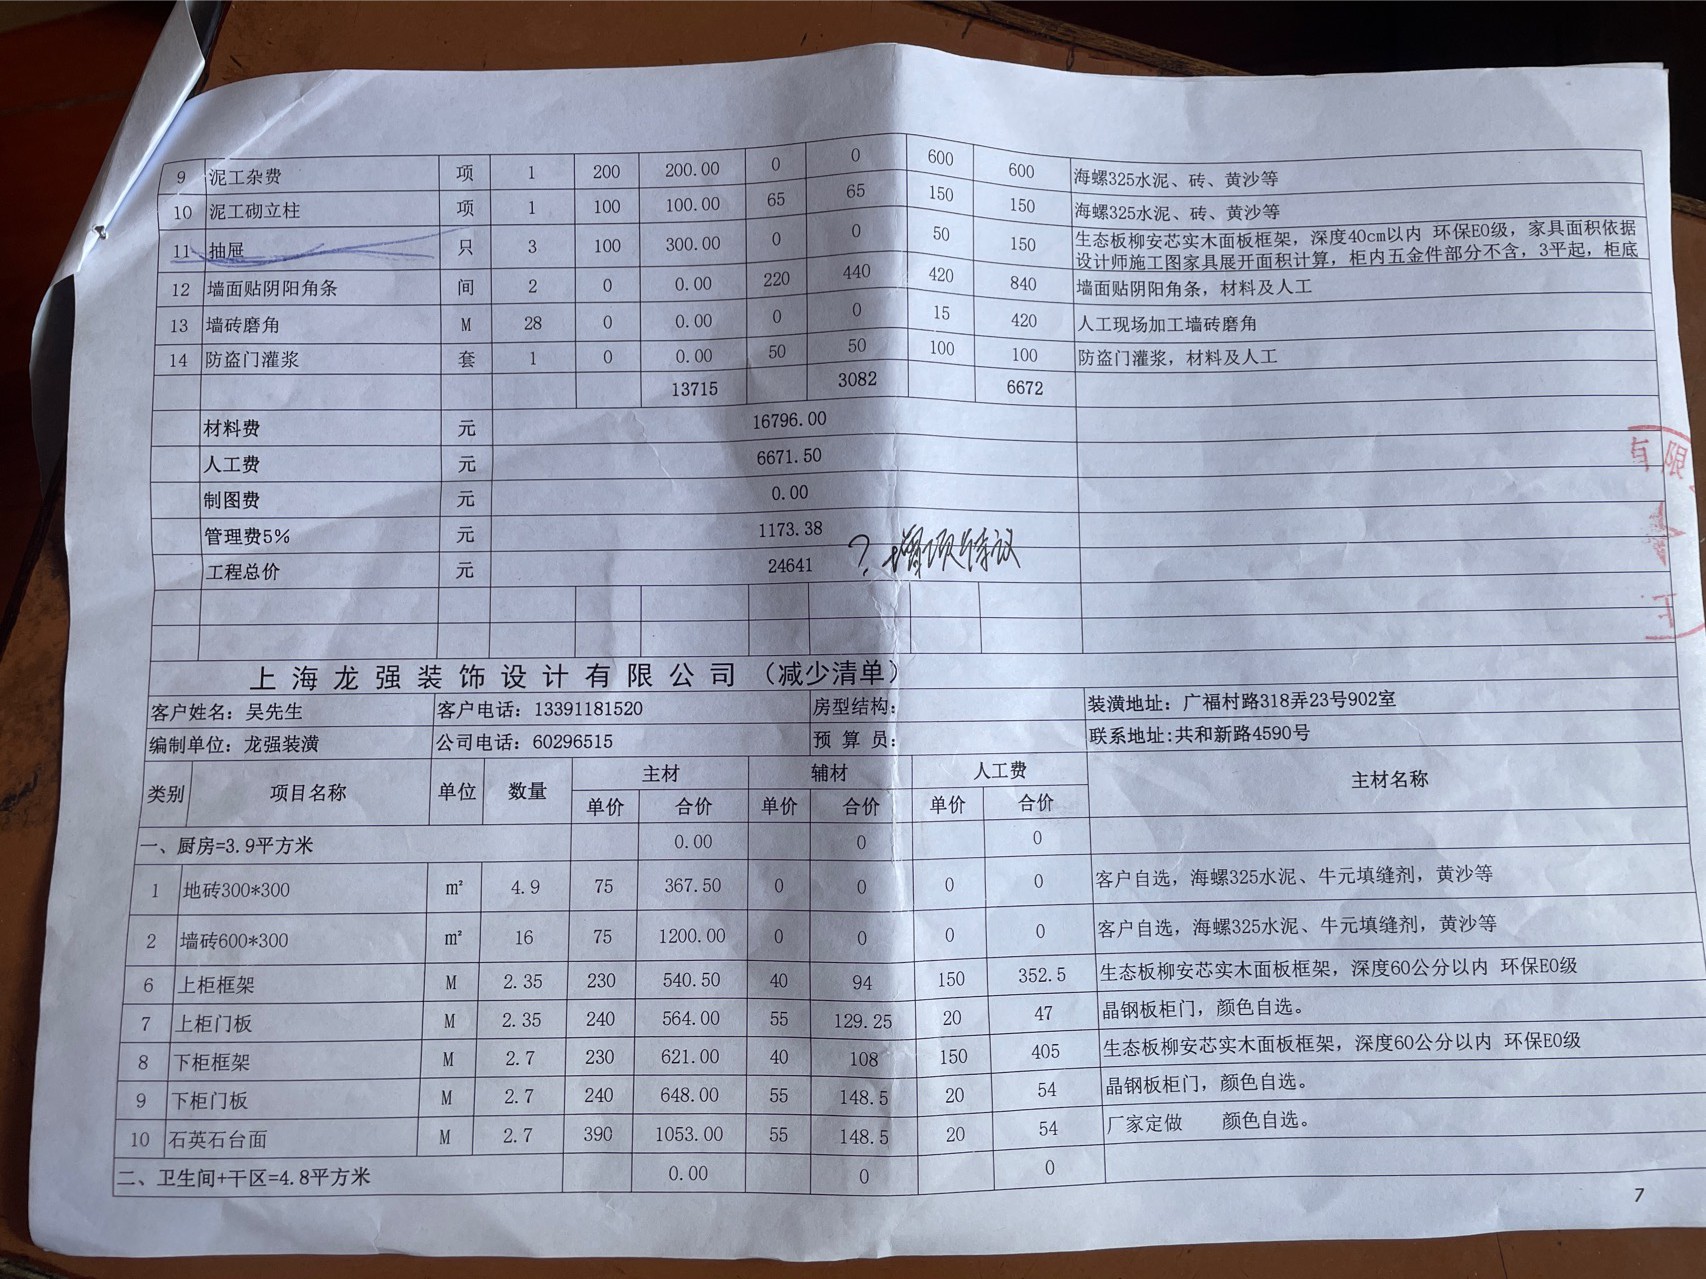 9 泥工杂费 项 1 200 200.00 0 0 600 600 海螺325水泥、砖、黄沙等
10 泥工砌立柱 项 1 100 100.00 65 65 150 150 海螺325水泥、砖、黄沙等
11 抽屉 只 3 100 300.00 0 0 50 150 生态板柳安芯实木面板框架，深度40cm以内 环保E0级，家具面积依据
设计师施工图家具展开面积计算，柜内五金件部分不含，3平起，柜底
12 墙面贴阴阳角条 间 2 0 0.00 220 440 420 840 墙面贴阴阳角条，材料及人工
13 墙砖磨角 M 28 0 0.00 0 0 15 420 人工现场加工墙砖磨角
14 防盗门灌浆 套 1 0 0.00 50 50 100 100 防盗门灌浆，材料及人工
13715 3082 6672
材料费 元 16796.00
人工费 元 6671.50
制图费 元 0.00
管理费5% 元 1173.38
工程总价 元 24641 ? 增项待议
有限
上海龙强装饰设计有限公司（减少清单）
客户姓名：吴先生 客户电话：13391181520 房型结构： 装潢地址：广福村路318弄23号902室
编制单位：龙强装潢 公司电话：60296515 预 算 员： 联系地址:共和新路4590号
类别 项目名称 单位 数量 主材 辅材 人工费 主材名称
单价 合价 单价 合价 单价 合价
一、厨房=3.9平方米 0.00 0 0
1 地砖300*300 m² 4.9 75 367.50 0 0 0 0 客户自选，海螺325水泥、牛元填缝剂，黄沙等
2 墙砖600*300 m² 16 75 1200.00 0 0 0 0 客户自选，海螺325水泥、牛元填缝剂，黄沙等
6 上柜框架 M 2.35 230 540.50 40 94 150 352.5 生态板柳安芯实木面板框架，深度60公分以内 环保E0级
7 上柜门板 M 2.35 240 564.00 55 129.25 20 47 晶钢板柜门，颜色自选。
8 下柜框架 M 2.7 230 621.00 40 108 150 405 生态板柳安芯实木面板框架，深度60公分以内 环保E0级
9 下柜门板 M 2.7 240 648.00 55 148.5 20 54 晶钢板柜门，颜色自选。
10 石英石台面 M 2.7 390 1053.00 55 148.5 20 54 厂家定做 颜色自选。
二、卫生间+干区=4.8平方米 0.00 0 0
7